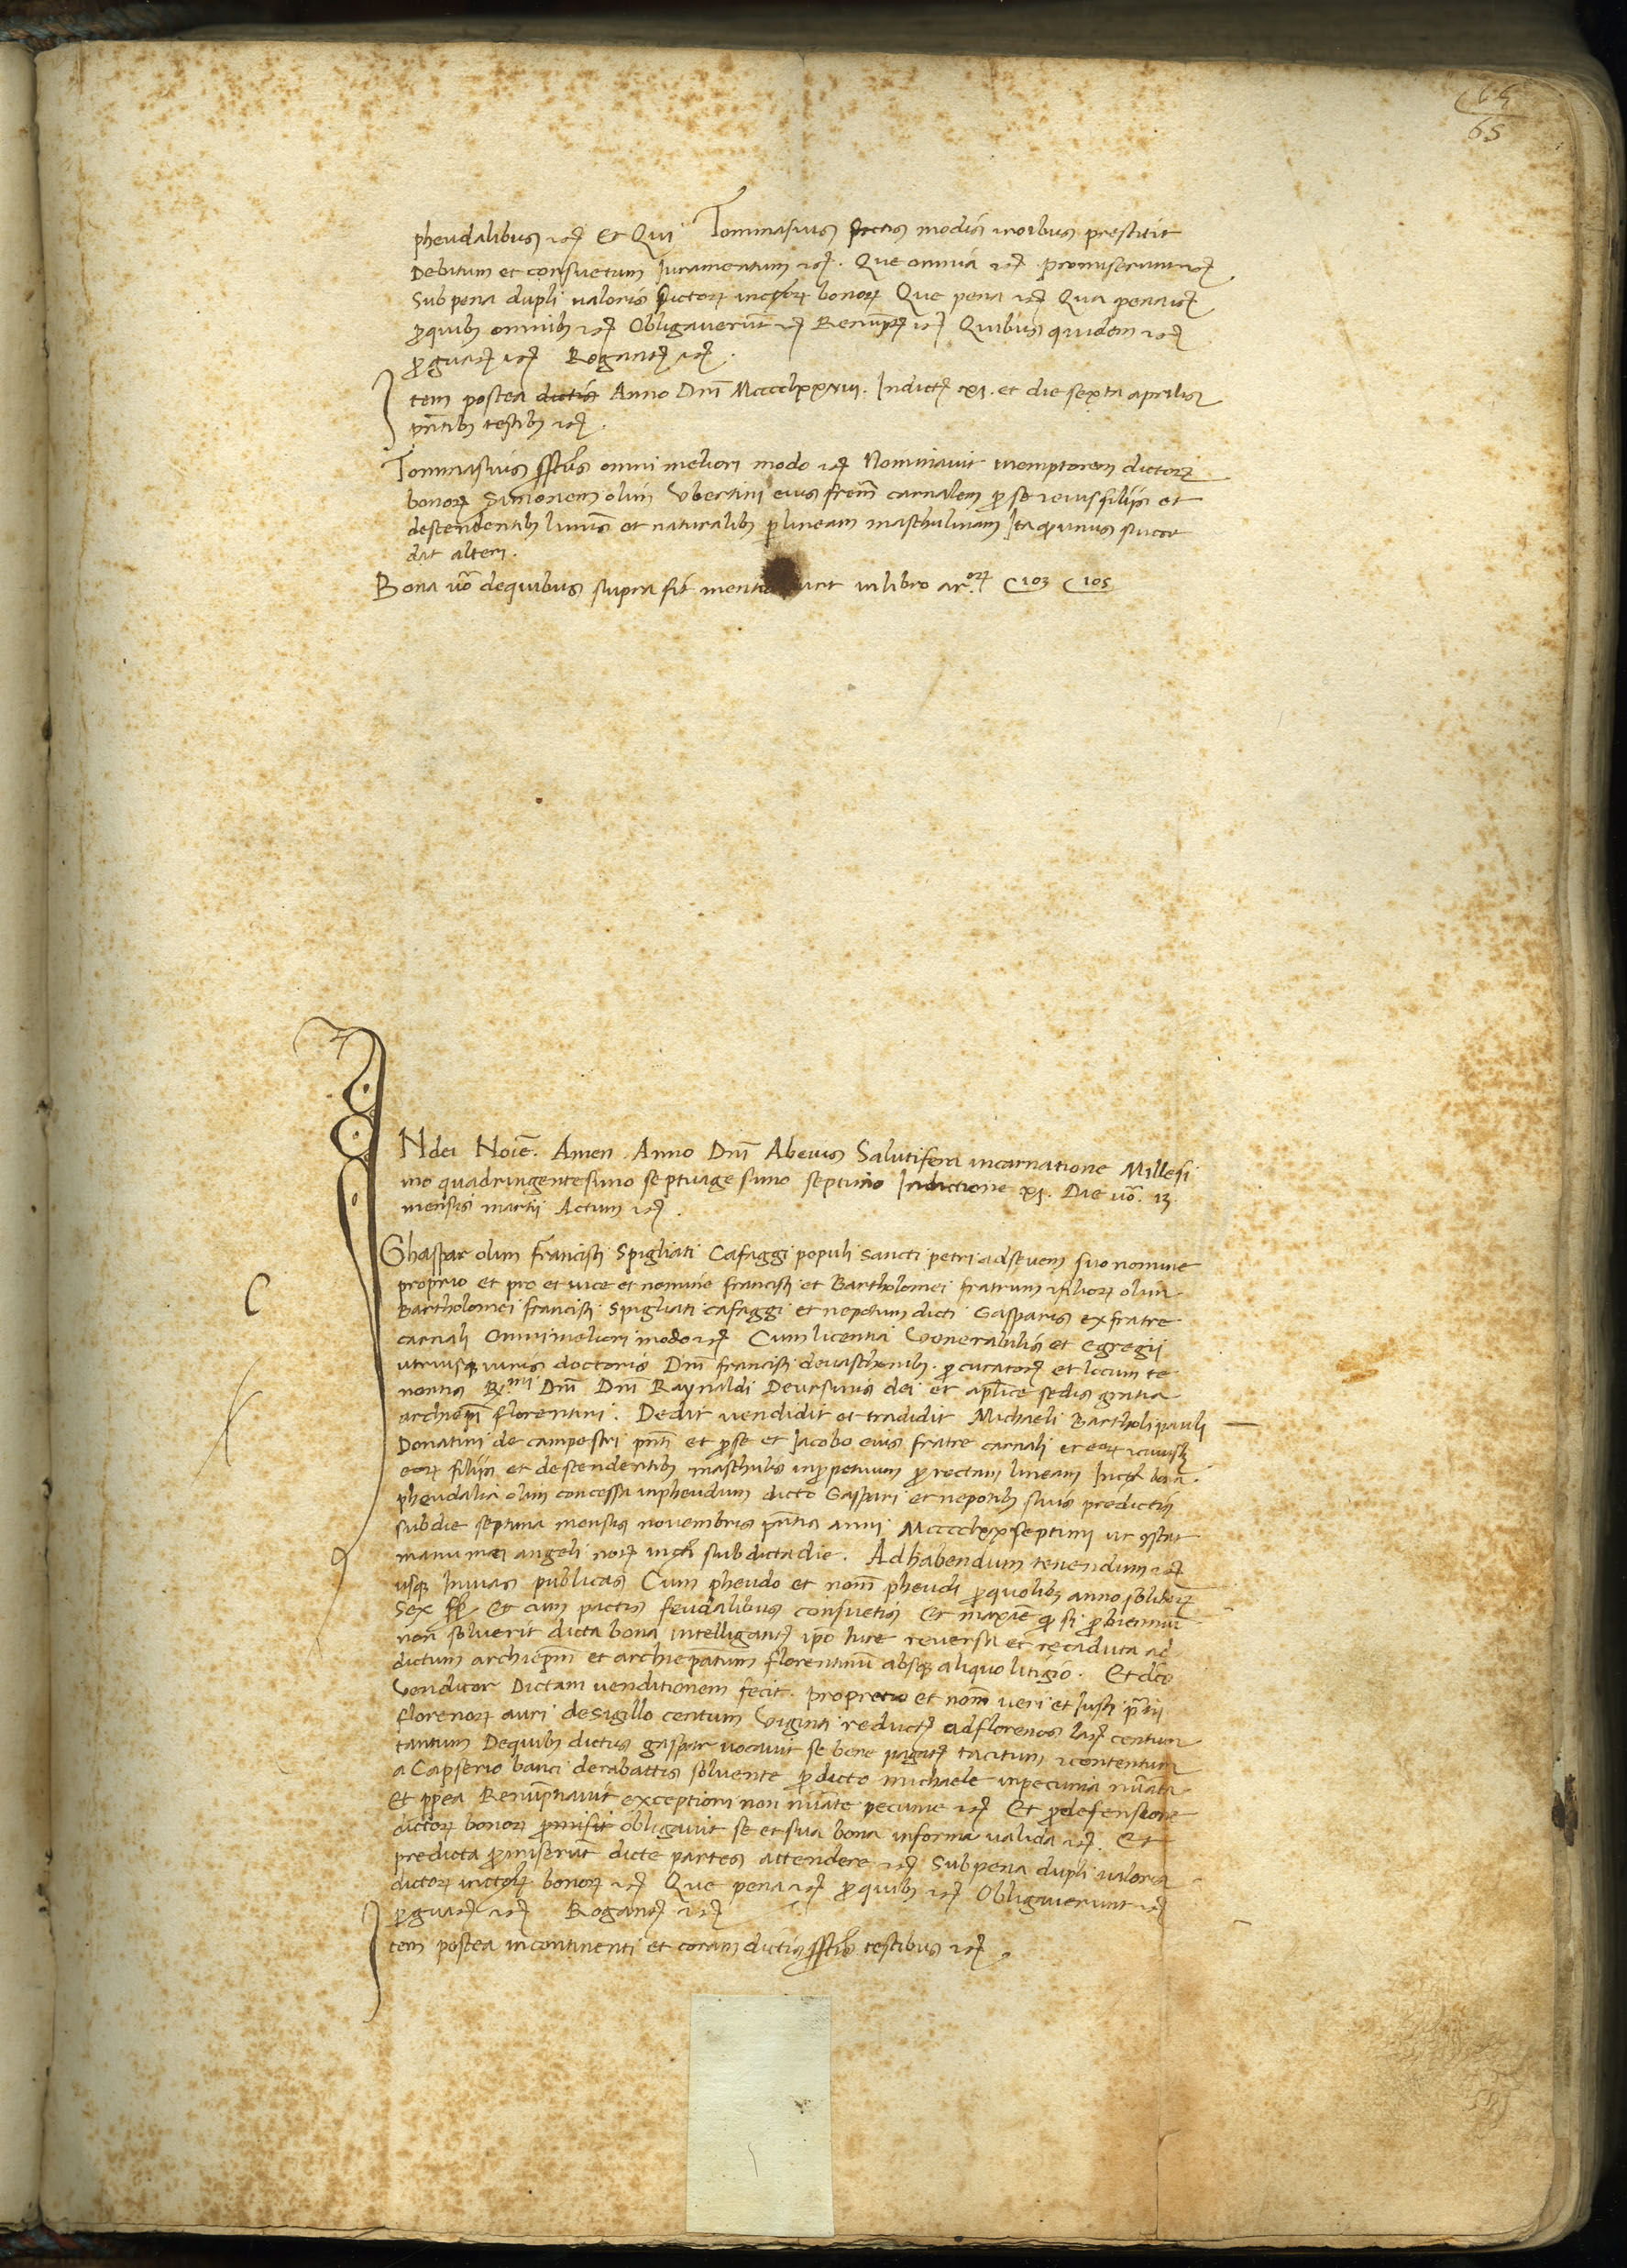 65
65
pheudalibus etc̃ Et Qui Tommasius modis moribus prestitit
Debitum et consuetum Juramentum etc̃. Que omnia etc̃ promiserunt etc̃
Sub pena dupli valoris Dictoꝝ bonoꝝ Que pena etc̃ Qua pena etc̃
ꝓquibꝫ omnibꝫ etc̃ Obligaverũt etc̃ etc̃ Quibus quidem etc̃
ꝓguar̃ etc̃ Rogantes etc̃.
Item postea Anno Dñi Indict̃ xj. et die sexta aprilis
pñtibꝫ testibꝫ etc̃.
Tommasius omni meliori modo etc̃ Nominavit inemptorem dictoꝝ
bonoꝝ Simonem olim Ubertini eius frem̃ carnalem ꝓ se filijs et
descendentibꝫ et naturalibꝫ ꝑ lineam maschulinam Ita ꝙ unus succe
dat alteri.
Bona ṽo dequibus supra fit mentio sunt in libro C 103 C 105
C
IN dei Noĩe. Amen Anno Dñi Abeius Salutifera incarnatione Millesi
mo quadringentesimo septuagesimo septimo Indictione xj. Die ṽo. 13.
mensis martij Actum etc̃.
Ghaspar olim Francisci Spigliati Cafaggi populi sancti petri adsevem suo nomine
proprio et pro et vice et nomine francisci et Bartholomei fratrum filioꝝ olim
Bartholomei francisci Spigliati cafaggi et nepotum dicti Gasparis exfratre
carnali Omni meliori modo etc̃ Cum licentia Venerabilis et egregij
utriusqꝫ iuris doctoris Dñi francisci ꝓcuratoris et locum te
nentis Dñi Dñi Raynaldi Deursinis dei et aplice sedis gratia
archiepĩ florentini. Dedit vendidit et tradidit Michaeli Bartholi pauli
Donatini de campestri pñti et ꝓse et Jacobo eius fratre carnali et eoꝝ
eoꝝ filijs et descendentibꝫ maschulis inꝑpetuum ꝑ rectam lineam bona
pheudalia olim concessa inpheudum dicto Gaspari et nepotibꝫ suis predictis
sub die septima mensis novembris pñtis anni septimi ut
manu mei angeli not̃ sub dicta die. Ad habendum tenendum etc̃
usqꝫ publicas Cum pheudo et noñ pheudi ꝓ quolibꝫ anno solidoꝝ
Sex Et cum pactis feudalibus consuetis Et maxĩe ꝙ si ꝑ biennium
non solverit dicta bona intelligant̃ ip̃o iure reversa et recaduta ad
dictum archiep̃m et archiep̃atum florentinũ absqꝫ aliquo litigio. Et dc̃s
Venditor Dictam venditionem fecit. pro pretio et noñ veri et Justi p̃tij
florenoꝝ auri de sigillo centum Viginti reduct̃ ad florenos centum
tantum Dequibꝫ dictus gaspar vocavit se bene pagat̃ tacitum et contentum
a Capserio banci derabattis solvente ꝓ dicto michaele inpecunia nũata
Et ꝓpea Renũptiavit exceptioni non nũate pecunie etc̃ Et ꝓdefensione
dictoꝝ bonoꝝ promisit obligavit se et sua bona informa valida etc̃. Et
predicta ꝓmiserũt dicte partes attendere etc̃ Sub pena dupli valoris
dictoꝝ bonoꝝ etc̃ Que pena etc̃ ꝓ quibꝫ etc̃ Obligaverunt etc̃
ꝓguar̃ etc̃ Rogantes etc̃
Item postea incontinenti et coram dictis testibus etc̃.